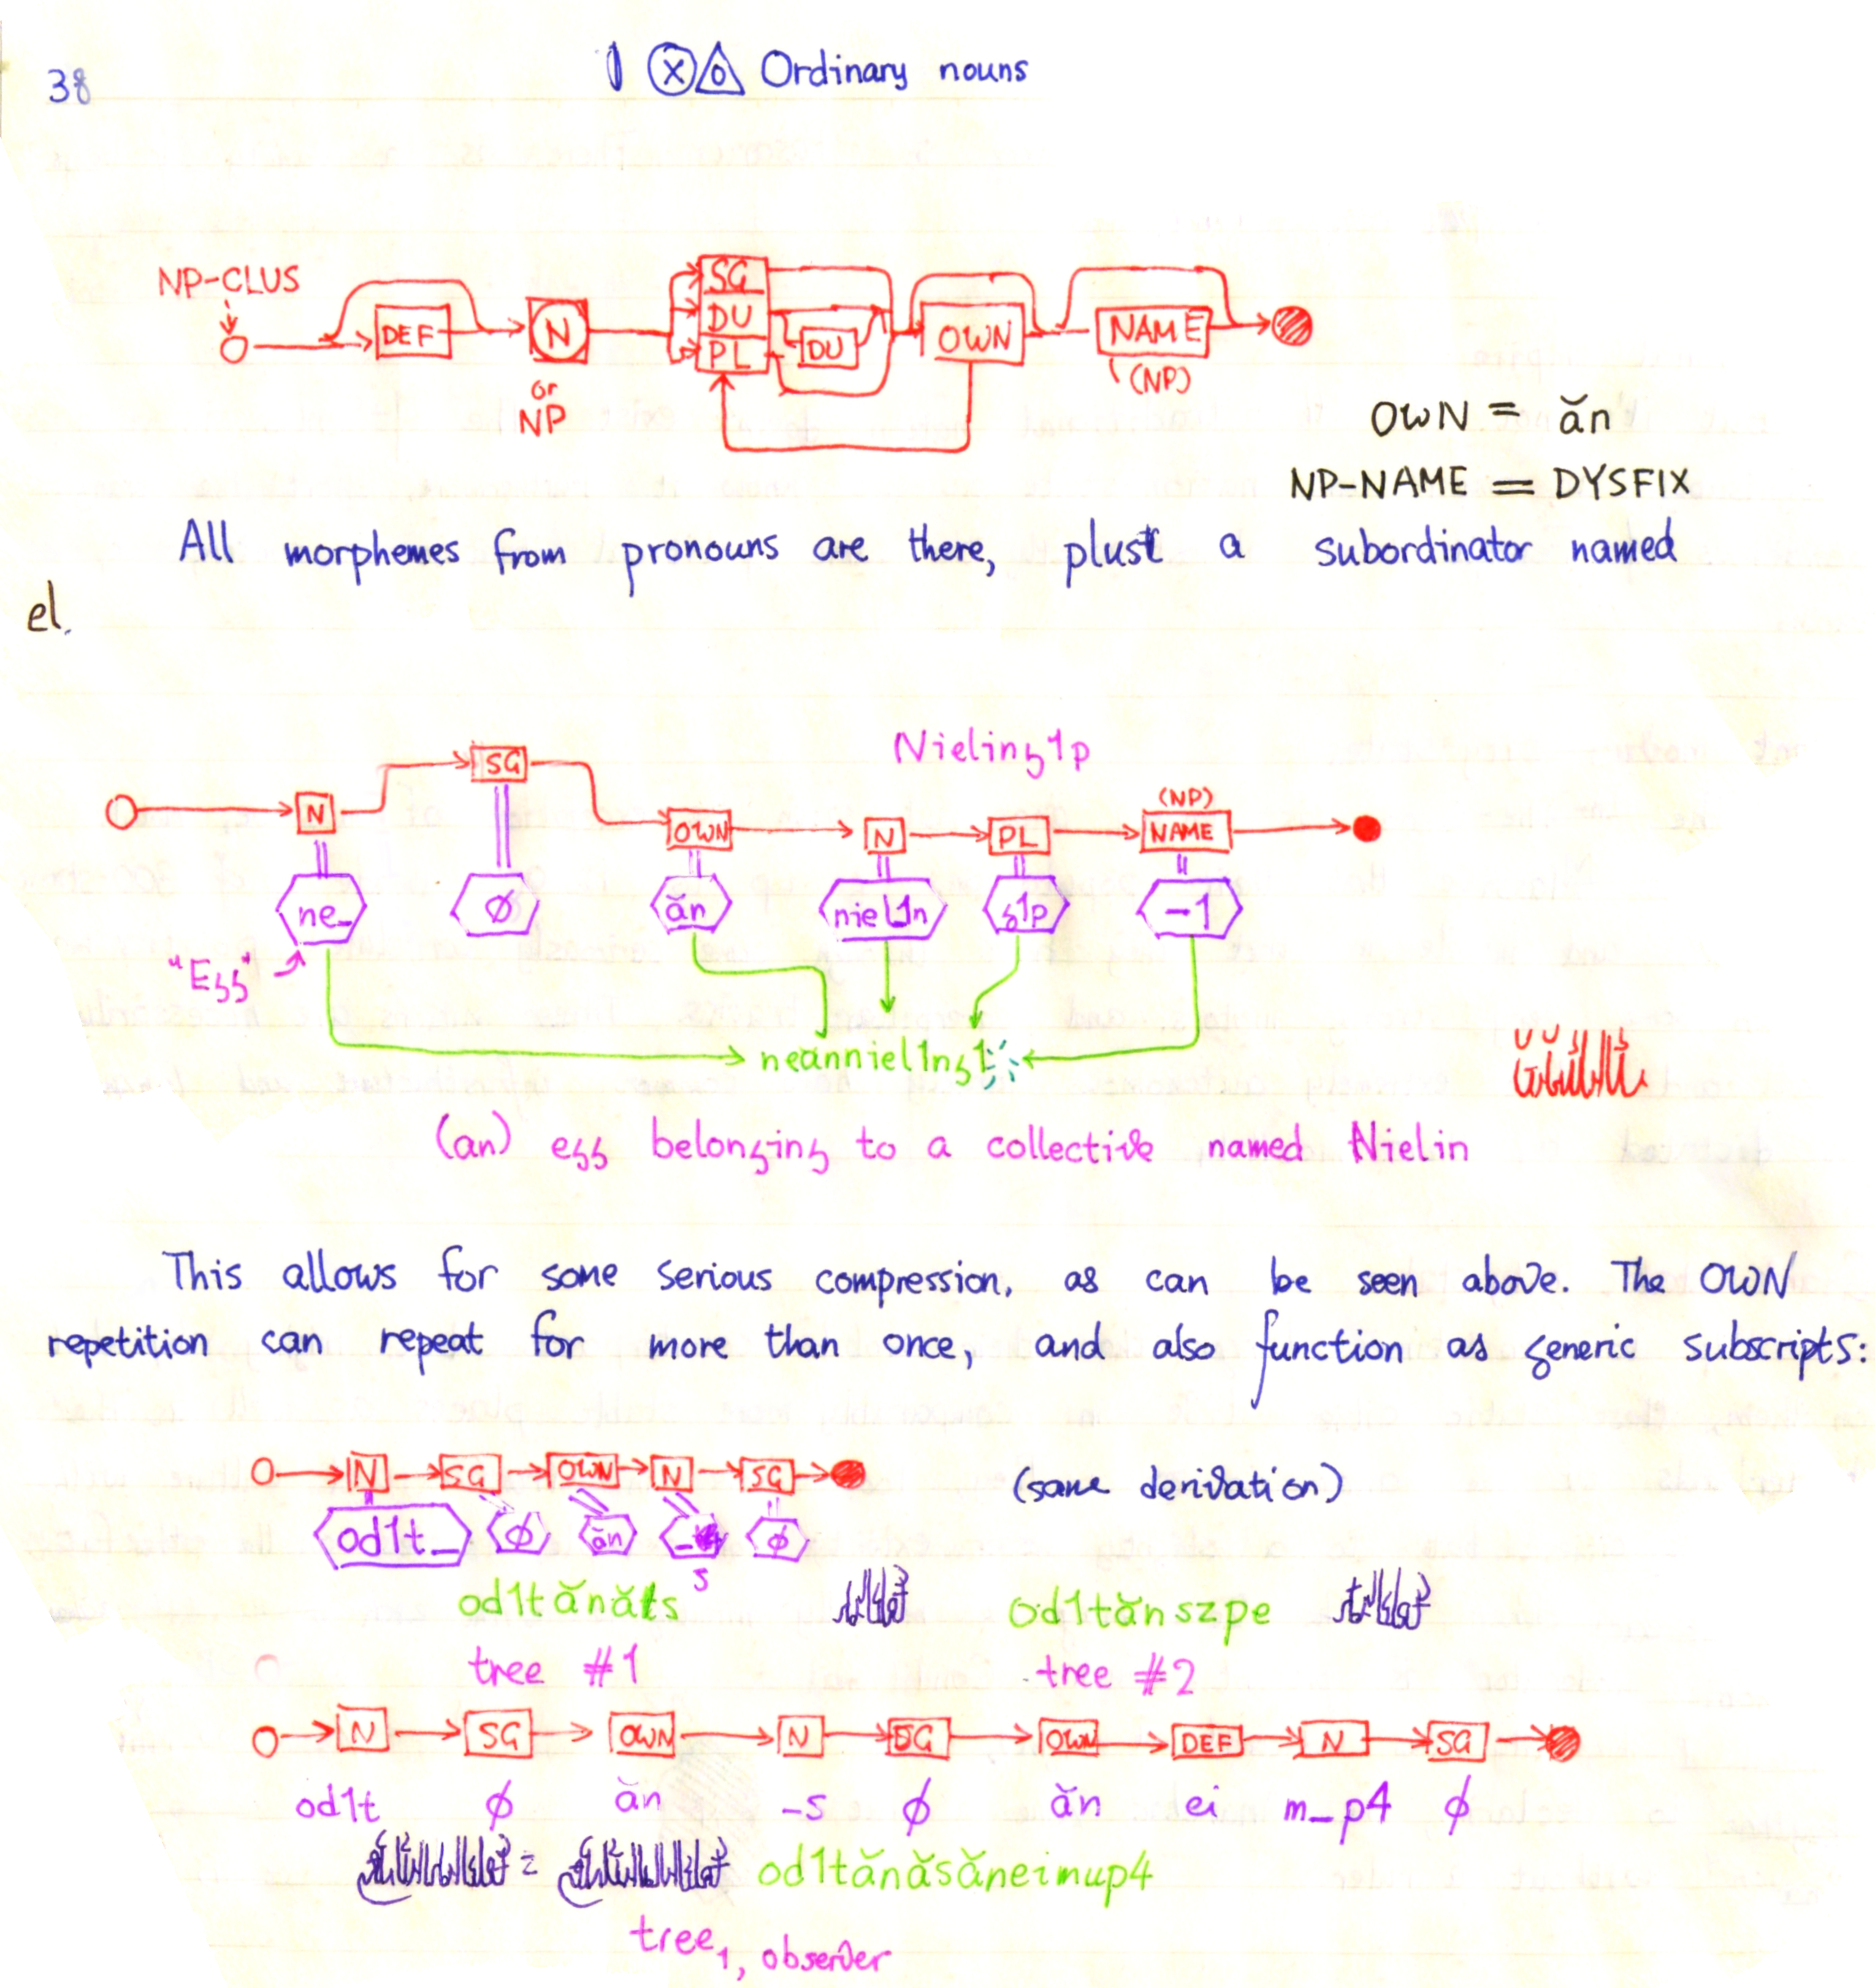 38
Ordinary nouns
NP-CLUS
DEF
N
or
NP
SG
DU
PL
DU
OWN
NAME
(NP)
OWN = ăn
NP-NAME = DYSFIX
All morphemes from pronouns are there, plus a subordinator named
el.
Nieling1p
N SG OWN N PL NAME
(NP)
ne_ ∅ ăn niel1n g1p -1
"Ess"
neănniel1ng1
(an) ess belonging to a collective named Nielin
This allows for some serious compression, as can be seen above. The OWN
repetition can repeat for more than once, and also function as generic subscripts:
N SG OWN N SG
(same derivation)
od1t_ ∅ ăn ∅
s
od1tănăts od1tănszpe
tree #1 tree #2
N SG OWN N SG OWN DEF N SG
od1t ∅ ăn -s ∅ ăn ei m_p4 ∅
= od1tănăsăneimup4
tree1, observer